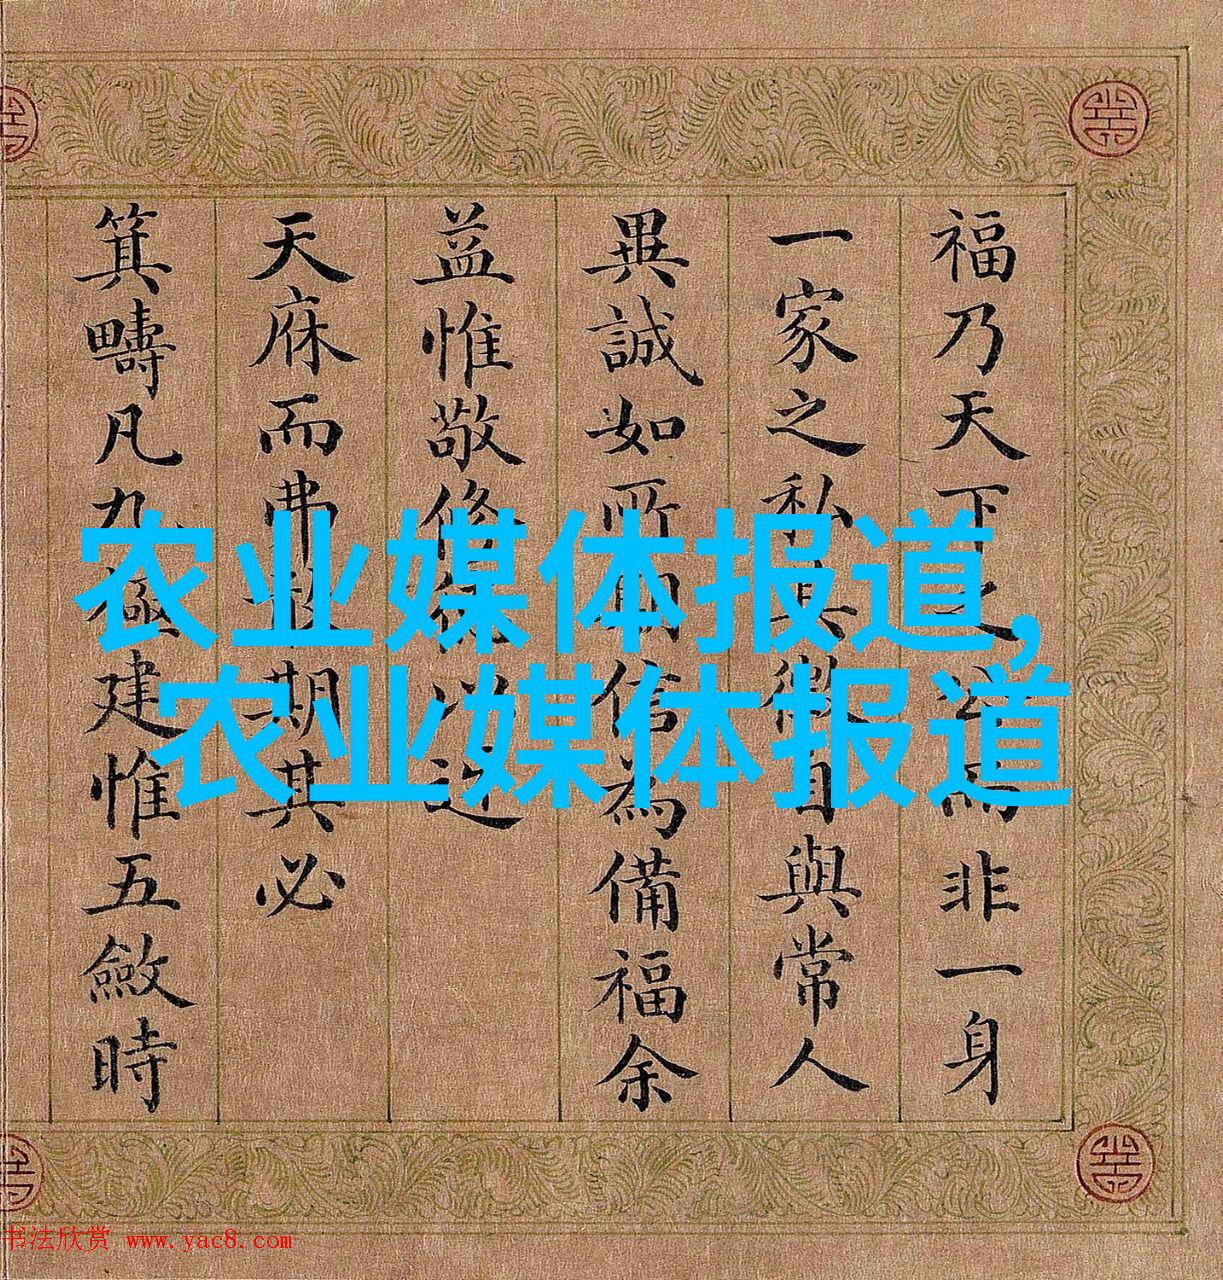 福乃天下之而非一身
一家之私其自與常人
異誠如所信為備福余
益惟敬修以迓
天庥而弗期其必
箕疇凡九極建惟五斂時
农业媒体报道,
农业媒体报道
书法欣赏 www.yac8.com